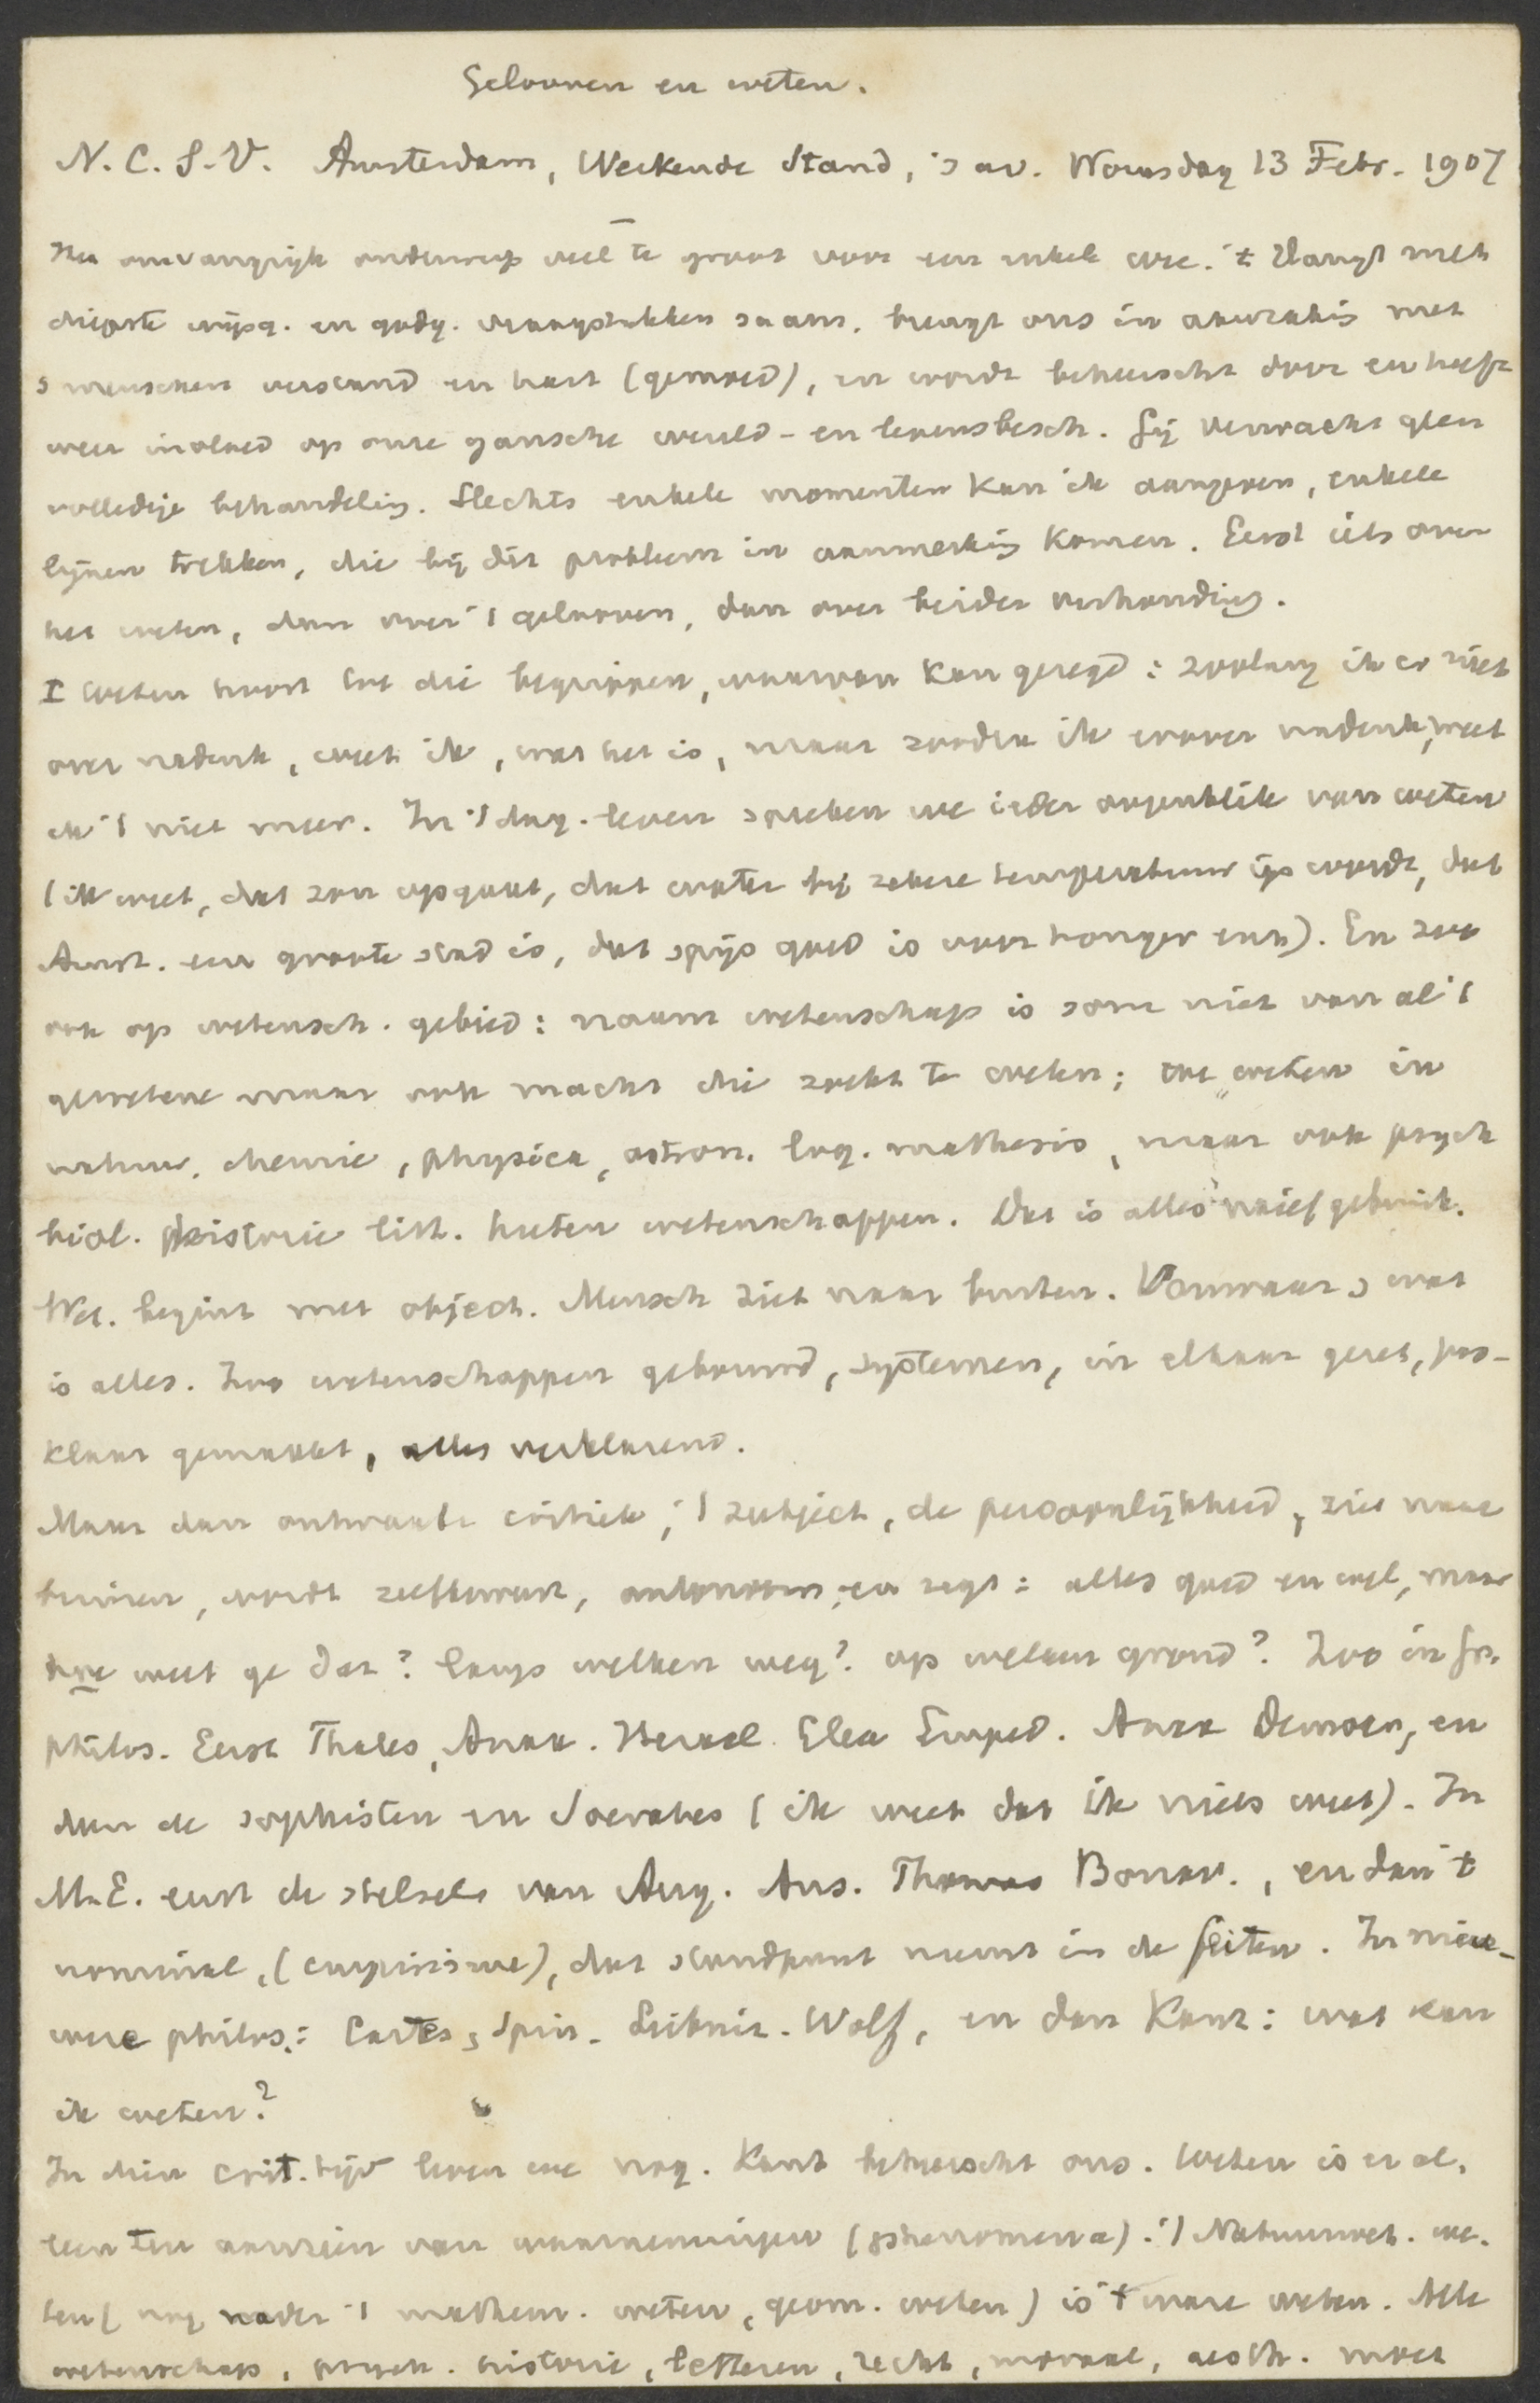 Gelooven en weten.
N. C. S. V. Amsterdam, Weekende Stand, 's av. Woensdag 13 Febr. 1907
Een omvangrijk onderwerp veel te groot voor een enkele ure. 't Hangt met
diepste wijsg. en godg. vraagstukken saam, brengt ons in aanraking met
s menschen verstand en hart (gemoed), en wordt beheerscht door en heeft
weer invloed op onze gansche wereld- en levensbesch. Gij verwacht geen
volledige behandeling. Slechts enkele momenten kan ik aangeven, enkele
lijnen trekken, die bij dit probleem in aanmerking komen. Eerst iets over
het weten, dan over 't gelooven, dan over beider verhouding.
I Weten hoort tot die begrippen, waarvan kan gezegd: zoolang ik er niet
over nadenk, weet ik, wat het is, maar zoodra ik erover nadenk, weet
ik 't niet meer. In 't dag. leven spreken we ieder oogenblik van weten
(ik weet, dat zon opgaat, dat water bij zekere temperatuur ijs wordt, dat
Amst. een groote stad is, dat spijs goed is voor honger enz). En zoo
ook op wetensch. gebied: naam wetenschap is som niet van al 't
gewetene maar ook macht die zoekt te weten; we weten in
natuur, chemie, physica, astron. log. mathesis, maar ook psych
biol. historie litt. heeten wetenschappen. Dat is alles naief gebruik.
Wet. begint met object. Mensch ziet naar buiten. Vanwaar, wat
is alles. Zoo wetenschappen gebouwd, systemen, in elkaar gezet, pas-
klaar gemaakt, alles verklarend.
Maar dan ontwaakt critiek; 't subject, de persoonlijkheid, ziet naar
binnen, wordt zelfbewust, autonoom, en zegt: alles goed en wel, maar
hoe weet ge dat? langs welken weg? op welken grond? Zoo in gr.
philos. Eerst Thales, Anax. Heracl. Elea Emped. Anax Democr, en
dan de sophisten en Socrates (ik weet dat ik niets weet). In
M.E. eerst de stelsels van Aug. Ans. Thomas Bonav., en dan 't
nominal. (empirisme), dat standpunt neemt in de feiten. In nieu-
were philos.: Cartes, Spin. Leibniz. Wolf, en dan Kant: wat kan
ik weten?
In dien crit. tijd leven we nog. Kant beheerscht ons. Weten is er al.
leen ten aanzien van waarnemingen (phenomena). 't Natuurwet. we.
ten (nog nader 't mathem. weten, geom. weten) is 't ware weten. Alle
wetenschap, psych. historie, letteren, recht, moraal, aesth. moet